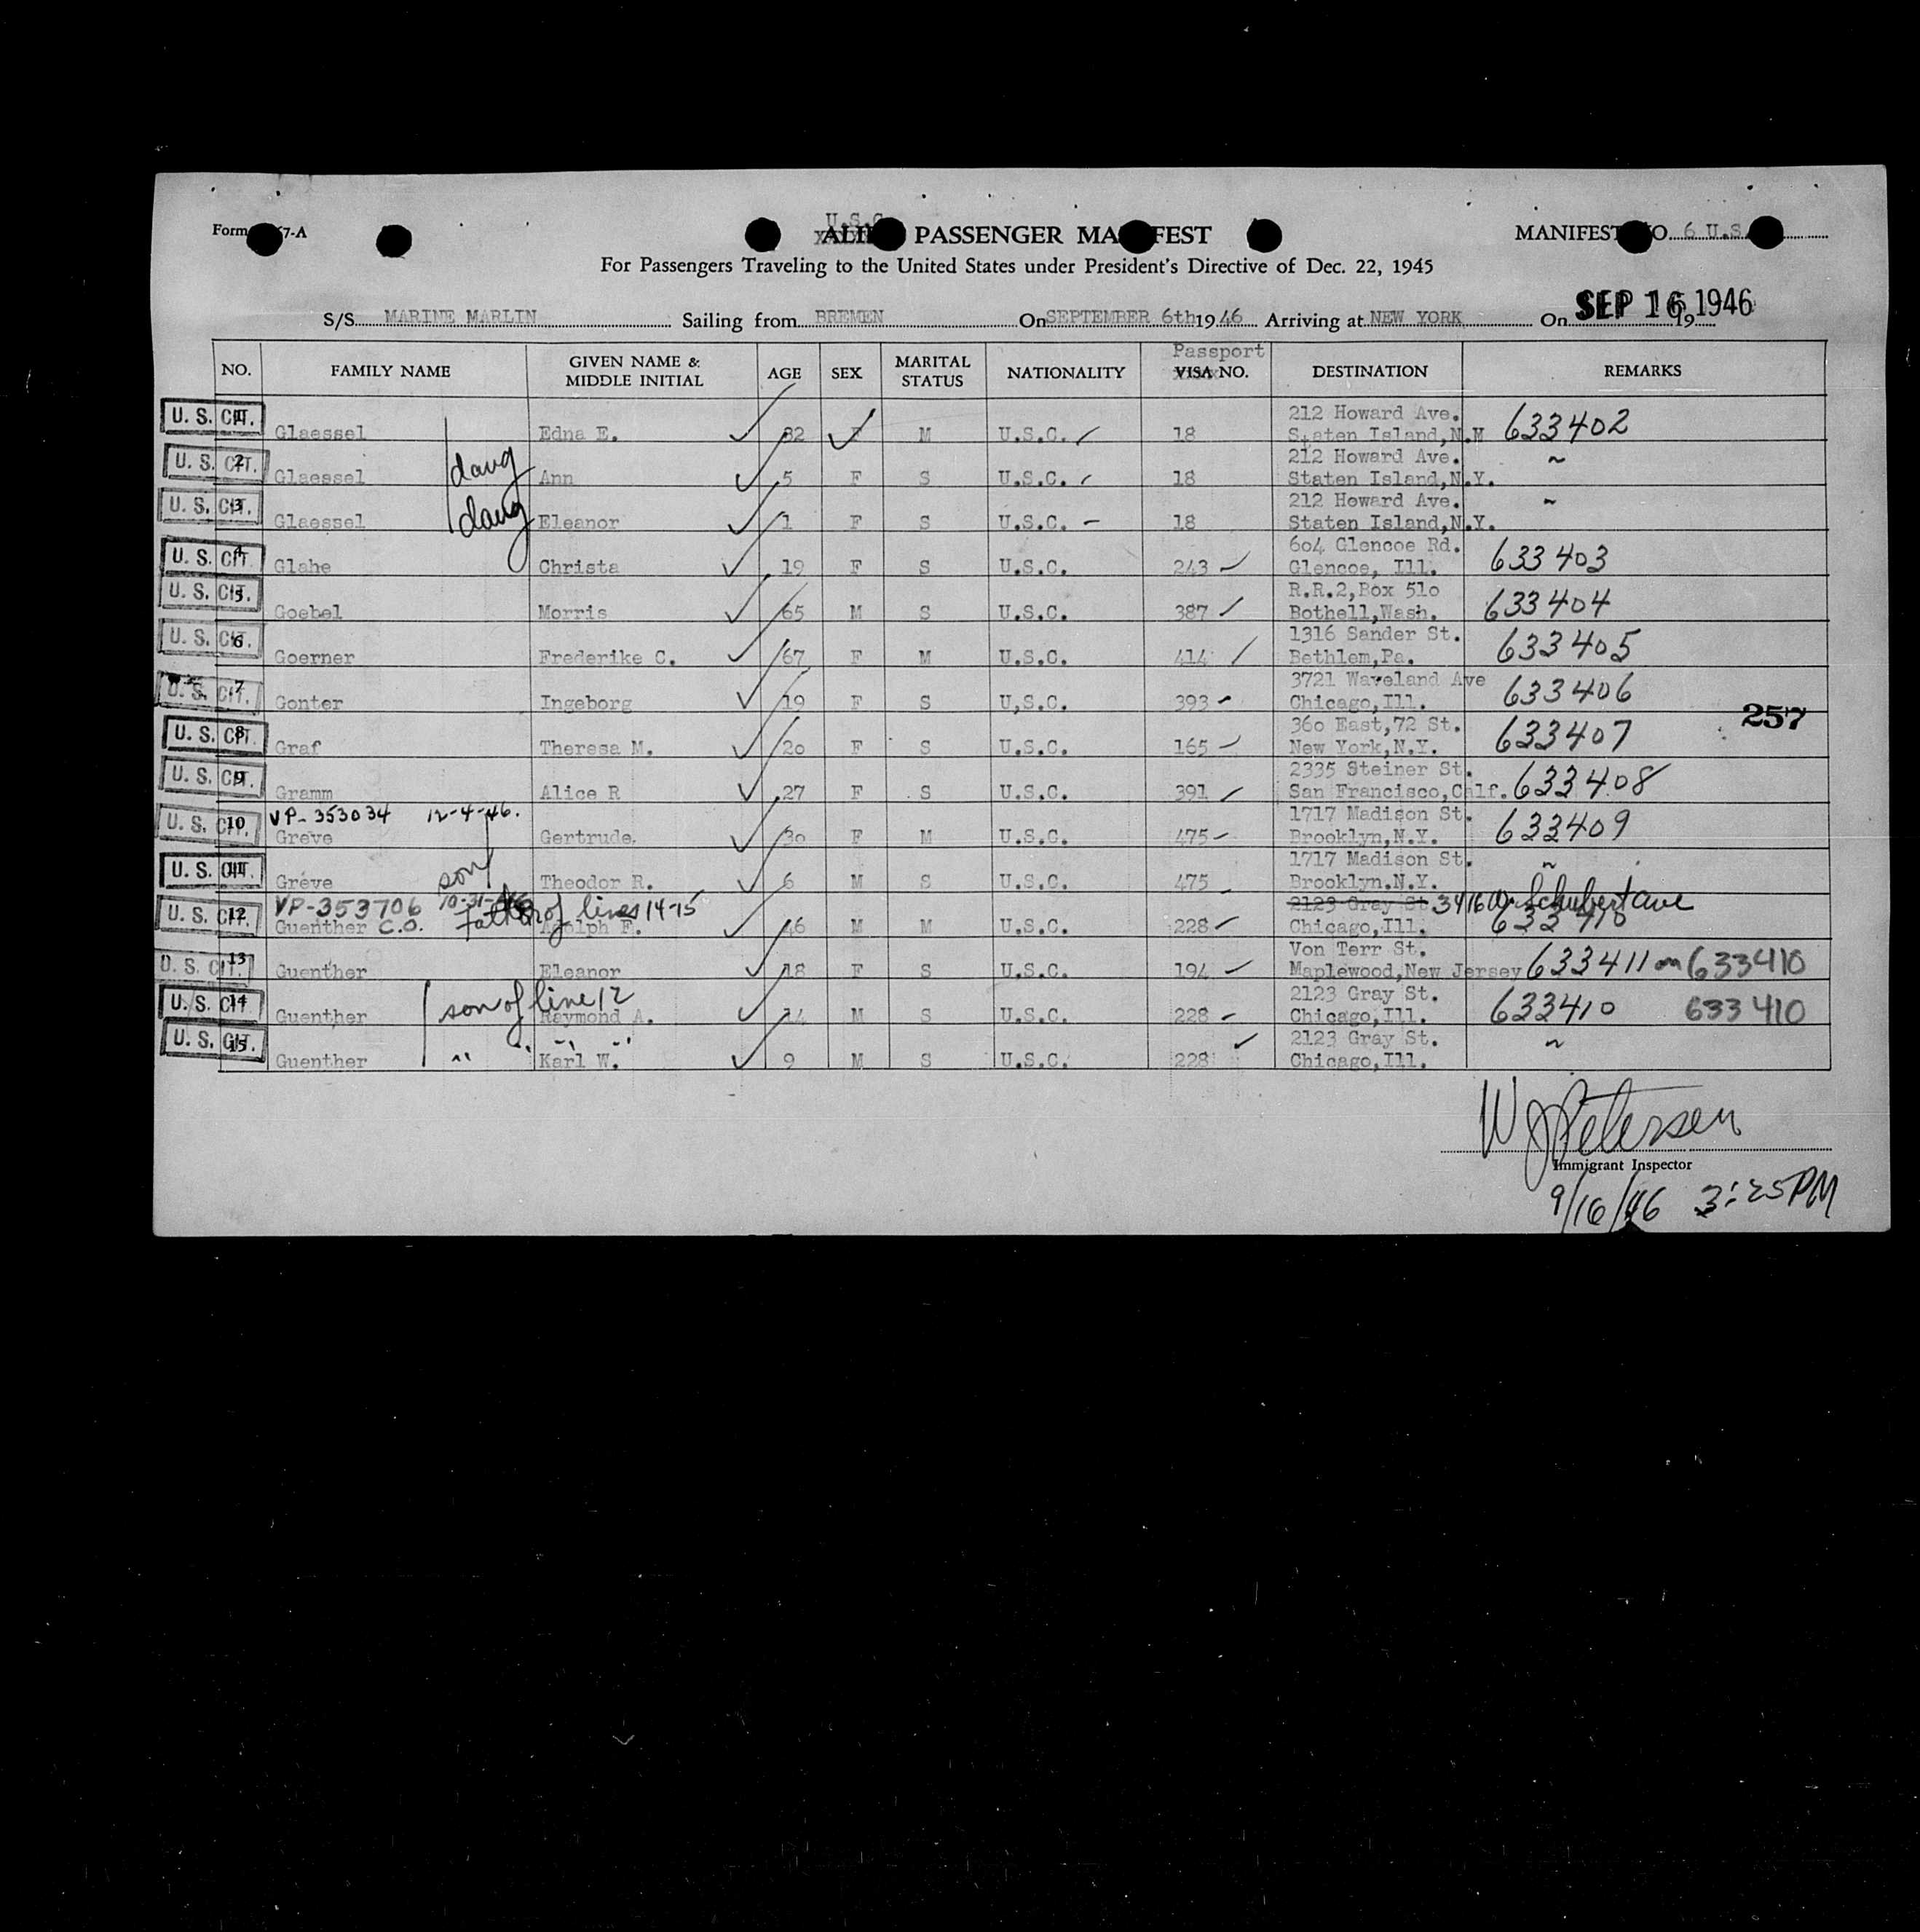 U.S.C.
Form 7-A PASSENGER MANIFEST MANIFEST NO. 6 U.S.
For Passengers Traveling to the United States under President's Directive of Dec. 22, 1945
S/S MARINE MARLIN Sailing from BREMEN On SEPTEMBER 6th 19 46 Arriving at NEW YORK On SEP 16 1946 19
NO. FAMILY NAME GIVEN NAME & MIDDLE INITIAL AGE SEX MARITAL STATUS NATIONALITY Passport VISA NO. DESTINATION REMARKS
212 Howard Ave.
U. S. CIT. 1 Glaessel Edna E. 32 F M U.S.C. 18 Staten Island,N.M 633402
212 Howard Ave. ~
U. S. CIT. 2 Glaessel daug Ann 5 F S U.S.C. 18 Staten Island,N.Y.
212 Howard Ave. ~
U. S. CIT. 3 Glaessel daug Eleanor 1 F S U.S.C. 18 Staten Island,N.Y.
604 Glencoe Rd.
U. S. CIT. 4 Glahe Christa 19 F S U.S.C. 243 Glencoe, Ill. 633403
R.R.2,Box 510
U. S. CIT. 5 Goebel Morris 65 M S U.S.C. 387 Bothell,Wash. 633404
1316 Sander St.
U. S. CIT. 6 Goerner Frederike C. 67 F M U.S.C. 414 Bethlem,Pa. 633405
3721 Waveland Ave
U. S. CIT. 7 Gonter Ingeborg 19 F S U,S.C. 393 Chicago,Ill. 633406
257
360 East,72 St.
U. S. CIT. 8 Graf Theresa M. 20 F S U.S.C. 165 New York,N.Y. 633407
2335 Steiner St.
U. S. CIT. 9 Gramm Alice R 27 F S U.S.C. 391 San Francisco,Calf. 633408
VP-353034 12-4-46. 1717 Madison St.
U. S. CIT. 10 Greve Gertrude. 30 F M U.S.C. 475 Brooklyn,N.Y. 633409
1717 Madison St. ~
U. S. CIT. 11 Greve son Theodor R. 6 M S U.S.C. 475 Brooklyn.N.Y.
VP-353706 10-31-46 Father of lines 14-15 2123 Gray St 3416 W. Schubert ave
U. S. CIT. 12 Guenther C.O. Adolph F. 46 M M U.S.C. 228 Chicago,Ill. 633410
Von Terr St.
U. S. CIT. 13 Guenther Eleanor 18 F S U.S.C. 194 Maplewood,New Jersey 633411 on 633410
son of line 12 2123 Gray St.
U. S. CIT. 14 Guenther Raymond A. 14 M S U.S.C. 228 Chicago,Ill. 633410 633410
2123 Gray St. ~
U. S. CIT. 15 Guenther " " " " Karl W. 9 M S U.S.C. 228 Chicago,Ill.
W J Petersen
Immigrant Inspector
9/16/46 3:25PM